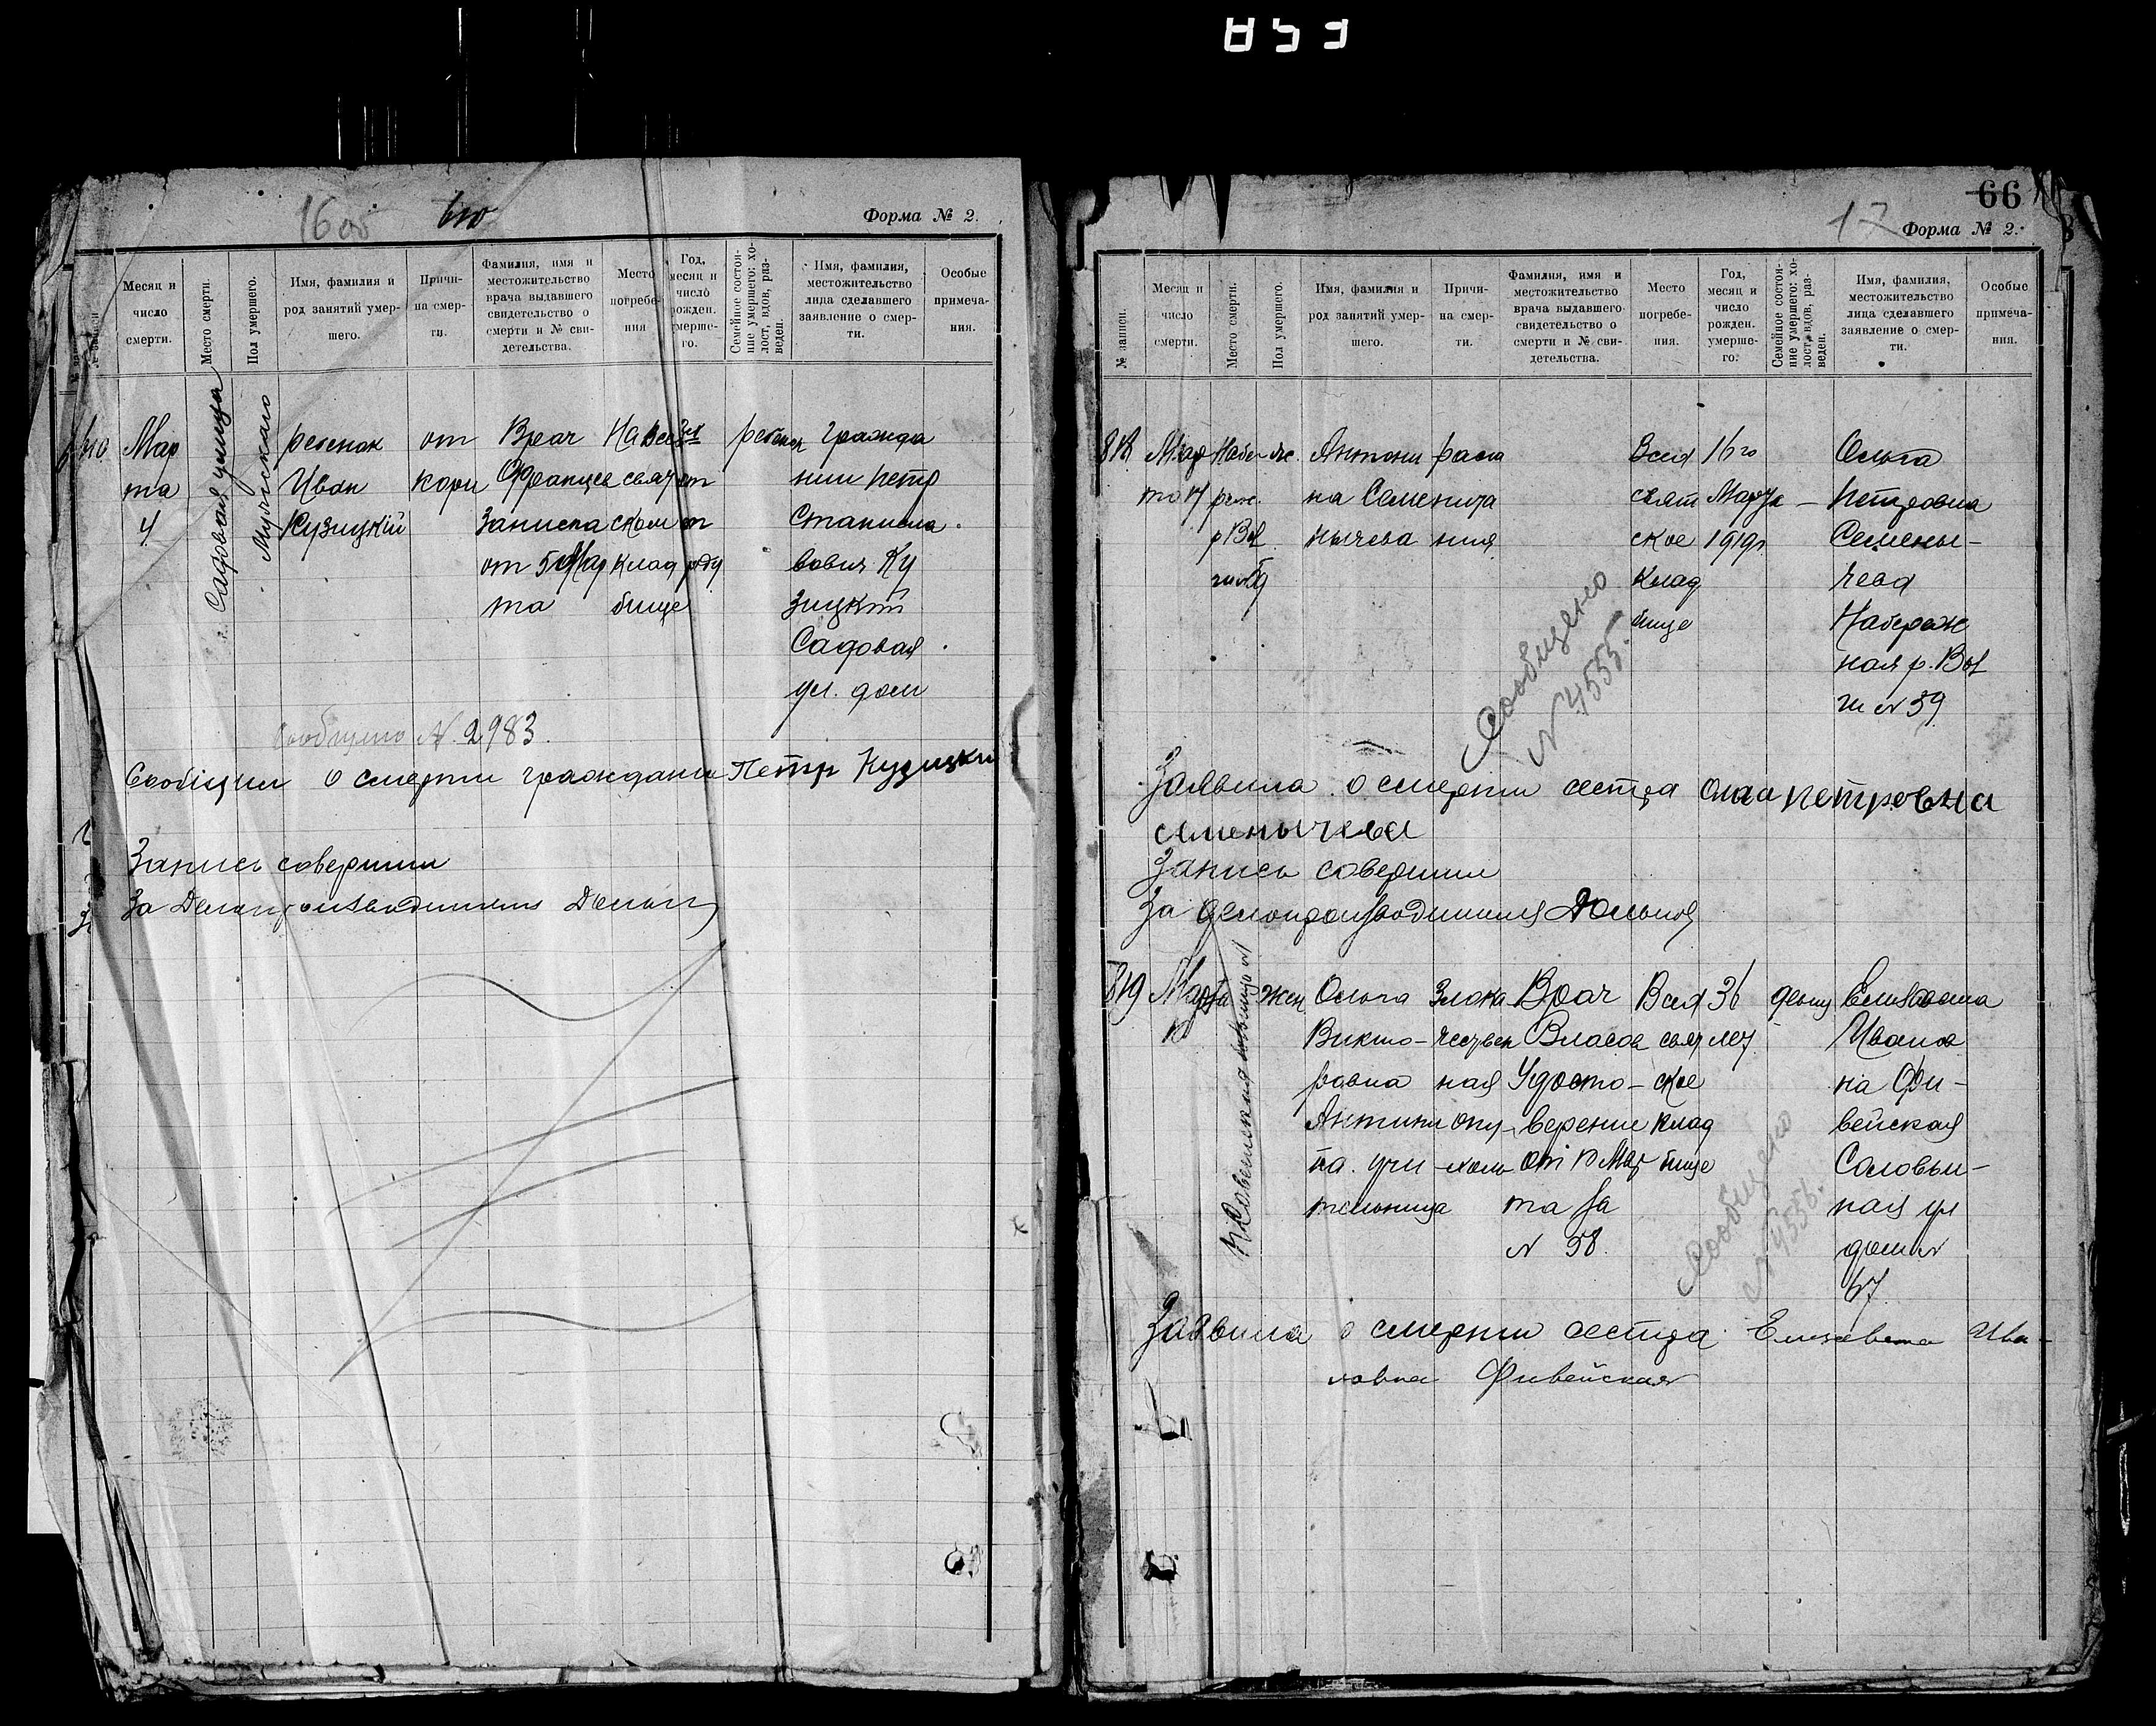 853
1600
610
Форма № 2.
№ записи
Месяц и число смерти.
Место смерти.
Пол умершего.
Имя, фамилия и род занятий умершего.
Причина смерти.
Фамилия, имя и местожительство врача выдавшего свидетельство о смерти и № свидетельства.
Место погребения
Год, месяц и число рожден. умершего.
Семейное состояние умершего: холост, вдов, разведен.
Имя, фамилия, местожительство лица сделавшего заявление о смерти.
Особые примечания.
610
Мар
та
4
Садовая улица
Мужскаго
ребенок
Иван
Кузицкій
от
кори
Врач
Францев
Записка
от 5 Мар
та
На Все
свят
ском
клад
бище
ребенок
гражда
нин Петр
Станисла
вович Ку
зицкий
Садовая
ул. дом
Сообщено № 2983
Сообщил о смерти гражданин Петр Кузицкий
Запись совершил
За Делопроизводителя
66
17
Форма № 2.
№ записи.
Месяц и число смерти.
Место смерти.
Пол умершего.
Имя, фамилия и род занятий умершего.
Причина смерти.
Фамилия, имя и местожительство врача выдавшего свидетельство о смерти и № свидетельства.
Место погребения.
Год, месяц и число рожден. умершего.
Семейное состояние умершего: холост, вдов, разведен.
Имя, фамилия, местожительство лица сделавшего заявление о смерти.
Особые примечания.
818
Мар
та 17
Набе
реж.
р Вол
ги
ж.
Антони
на Семе
нычева
Всех
свят
ское
клад
бище
16го
Марта
1919г
Ольга
Петровна
Семены-
чева
Набереж
ная р. Вол
ги № 59
Сообщено
№ 4555.
Заявила о смерти сестра Ольга Петровна
Семенычева
Запись совершил
За делопроизводителя
819
Марта
жен
Ольга
Викто-
ровна
Антипи
на. учи
тельница
Злока
чествен
ная
опу-
холь
Врач
Власов
Удосто-
верение
от 17 Мар
та за
№ 58.
Всех
свят
ское
клад
бище
36
лет
девиц
Елизавета
Иванов
на Фи-
вейская
Соловьи-
ная ул
дом №
67
Сообщено
№ 4556.
Заявила о смерти сестра Елизавета Ива-
новна Фивейская